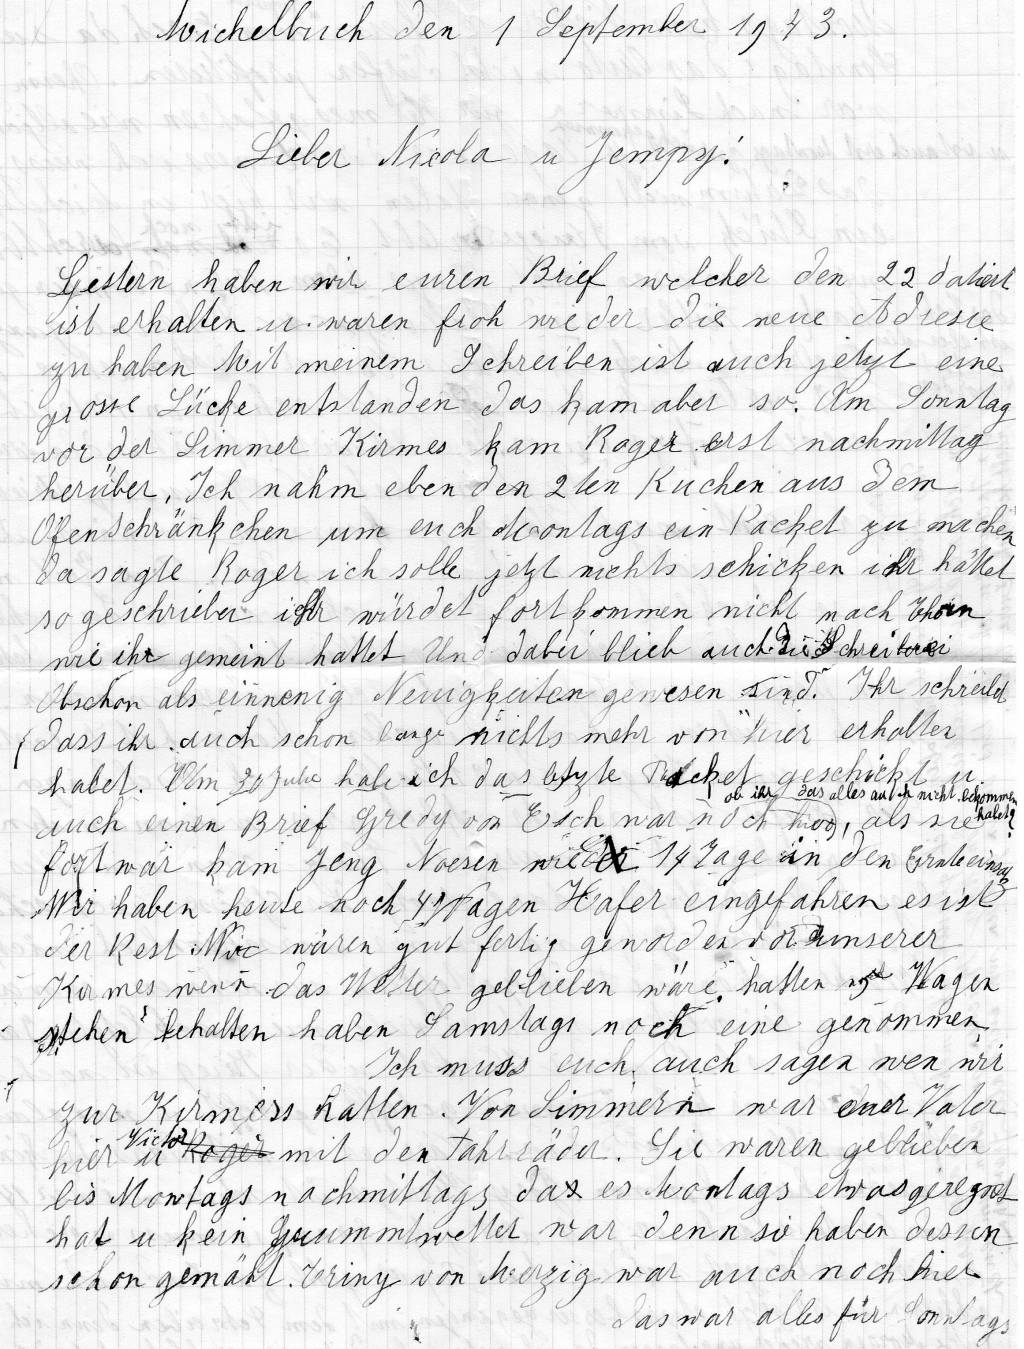 Michelbuch den 1 September 1943.
Lieber Nicola u Jempy!
Gestern haben wir euren Brief welcher den 22 datiert
ist erhalten u. waren froh wieder die neue Adresse
zu haben Mit meinem Schreiben ist auch jetzt eine
grosse Lücke entstanden das kam aber so. Am Sonntag
vor der Limmer Kirmes kam Roger erst nachmittag
herüber, Ich nahm eben den 2ten Kuchen aus dem
Ofenschränkchen um euch Montags ein Packet zu machen
da sagte Roger ich solle jetzt nichts schicken ihr hättet
so geschrieben ihr würdet fortkommen nicht nach Thorn
wie ihr gemeint hattet Und dabei blieb auch die Schreiberei
Obschon als einwenig Neuigkeiten gewesen sind. Ihr schreibt
dass ihr auch schon lange nichts mehr von hier erhalten
habet. Am 20 Julie hab ich das letzte Packet geschickt u.
ob ihr das alles auch nicht bekommen habet?
auch einen Brief Gredy von Esch war noch hier, als sie
fort war kam Jeng Noesen wieder 14 Tage in den Ernteeinsatz
Wir haben heute noch 4 Wagen Hafer eingefahren es ist
der Rest Wir wären gut fertig geworden vor unserer
Kirmes wenn das Wetter geblieben wäre, hatten Wagen
stehen behalten haben Samstags noch eine genommen
Ich muss euch auch sagen wen wir
zur Kirmess hatten. Von Simmern war euer Vater
hier u Victor Roger mit den Fahrräder. Sie waren geblieben
bis Montags nachmittags das es Montags etwas geregnet
hat u kein Grummtwetter war denn sie haben dessen
schon gemäht. Triny von Merzig war auch noch hier
das war alles für Sonntags